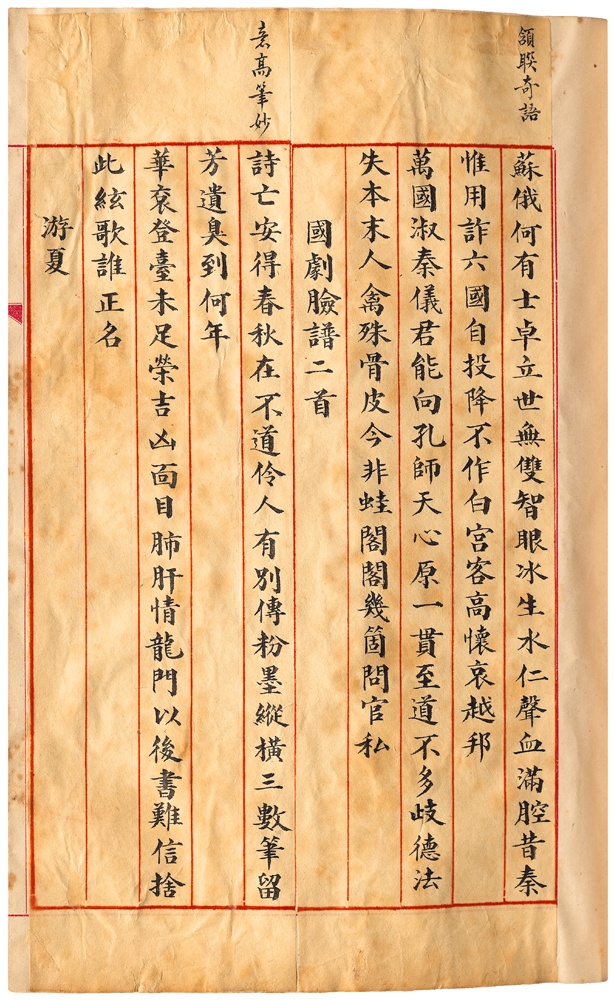 頷聯奇語
蘇俄何有士卓立世無雙智眼冰生水仁聲血滿腔昔秦
惟用詐六國自投降不作白宮客高懷哀越邦
萬國淑秦儀君能向孔師天心原一貫至道不多歧德法
失本末人禽殊骨皮今非蛙閣閣幾箇問官私
國劇臉譜二首
意高筆妙
詩亡安得春秋在不道伶人有別傳粉墨縱橫三數筆留
芳遺臭到何年
華袞登臺未足榮吉凶面目肺肝情龍門以後書難信捨
此絃歌誰正名
游夏